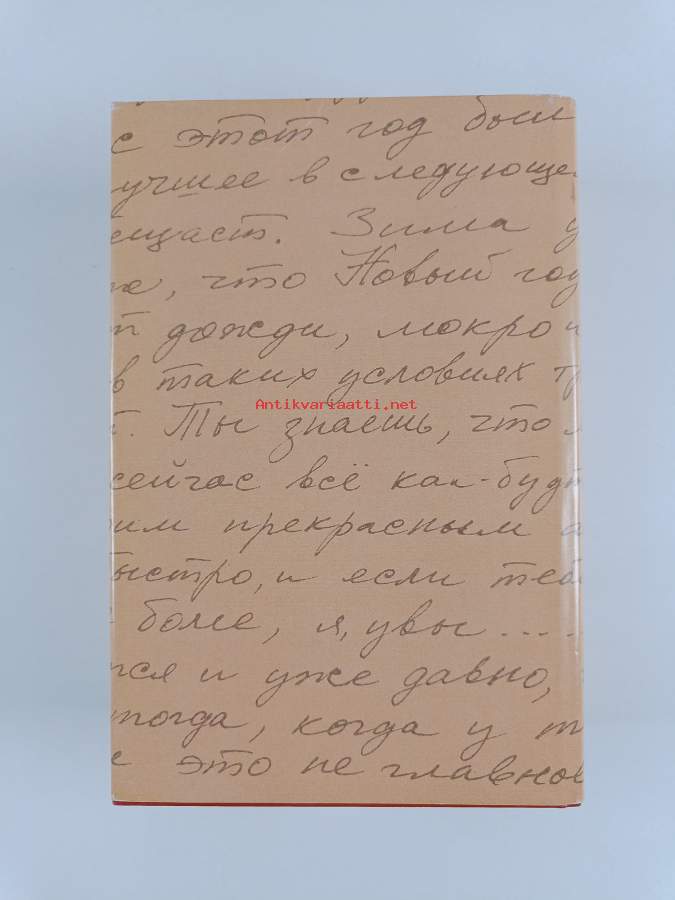 с этот год был
лучшее в следующе
ещаст. Зима у
что Новый год
т дожди, мокро и
в таких условиях тр
Antikvariaatti.net
т. Ты знаешь, что
сейчас всё как-будт
оим прекрасным а
быстро, и если теб
боле, я, увы ....
тся и уже давно,
тогда, когда у т
с это не главное